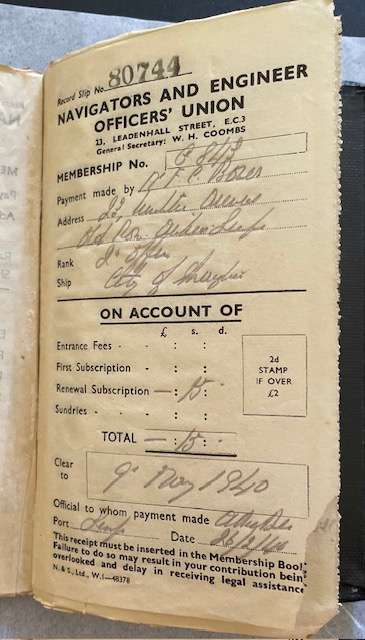 Record Slip No. 80744
NAVIGATORS AND ENGINEER
OFFICERS' UNION
23, LEADENHALL STREET, E.C.3
General Secretary: W. H. COOMBS
MEMBERSHIP No.
Payment made by F. C. Boxer
Address Avenue
Old
Rank 2nd Officer
Ship City of Shanghai
ON ACCOUNT OF
£ s. d.
Entrance Fees - - : :
First Subscription - : :
Renewal Subscription — : 15 :
Sundries - - - : :
TOTAL — : 15 -
2d
STAMP
IF OVER
£2
Clear
to 9 May 1940
Official to whom payment made
Port Date 26/2/40
This receipt must be inserted in the Membership Boo
Failure to do so may result in your contribution bein
overlooked and delay in receiving legal assistance
N. & S., Ltd., W.1—48378